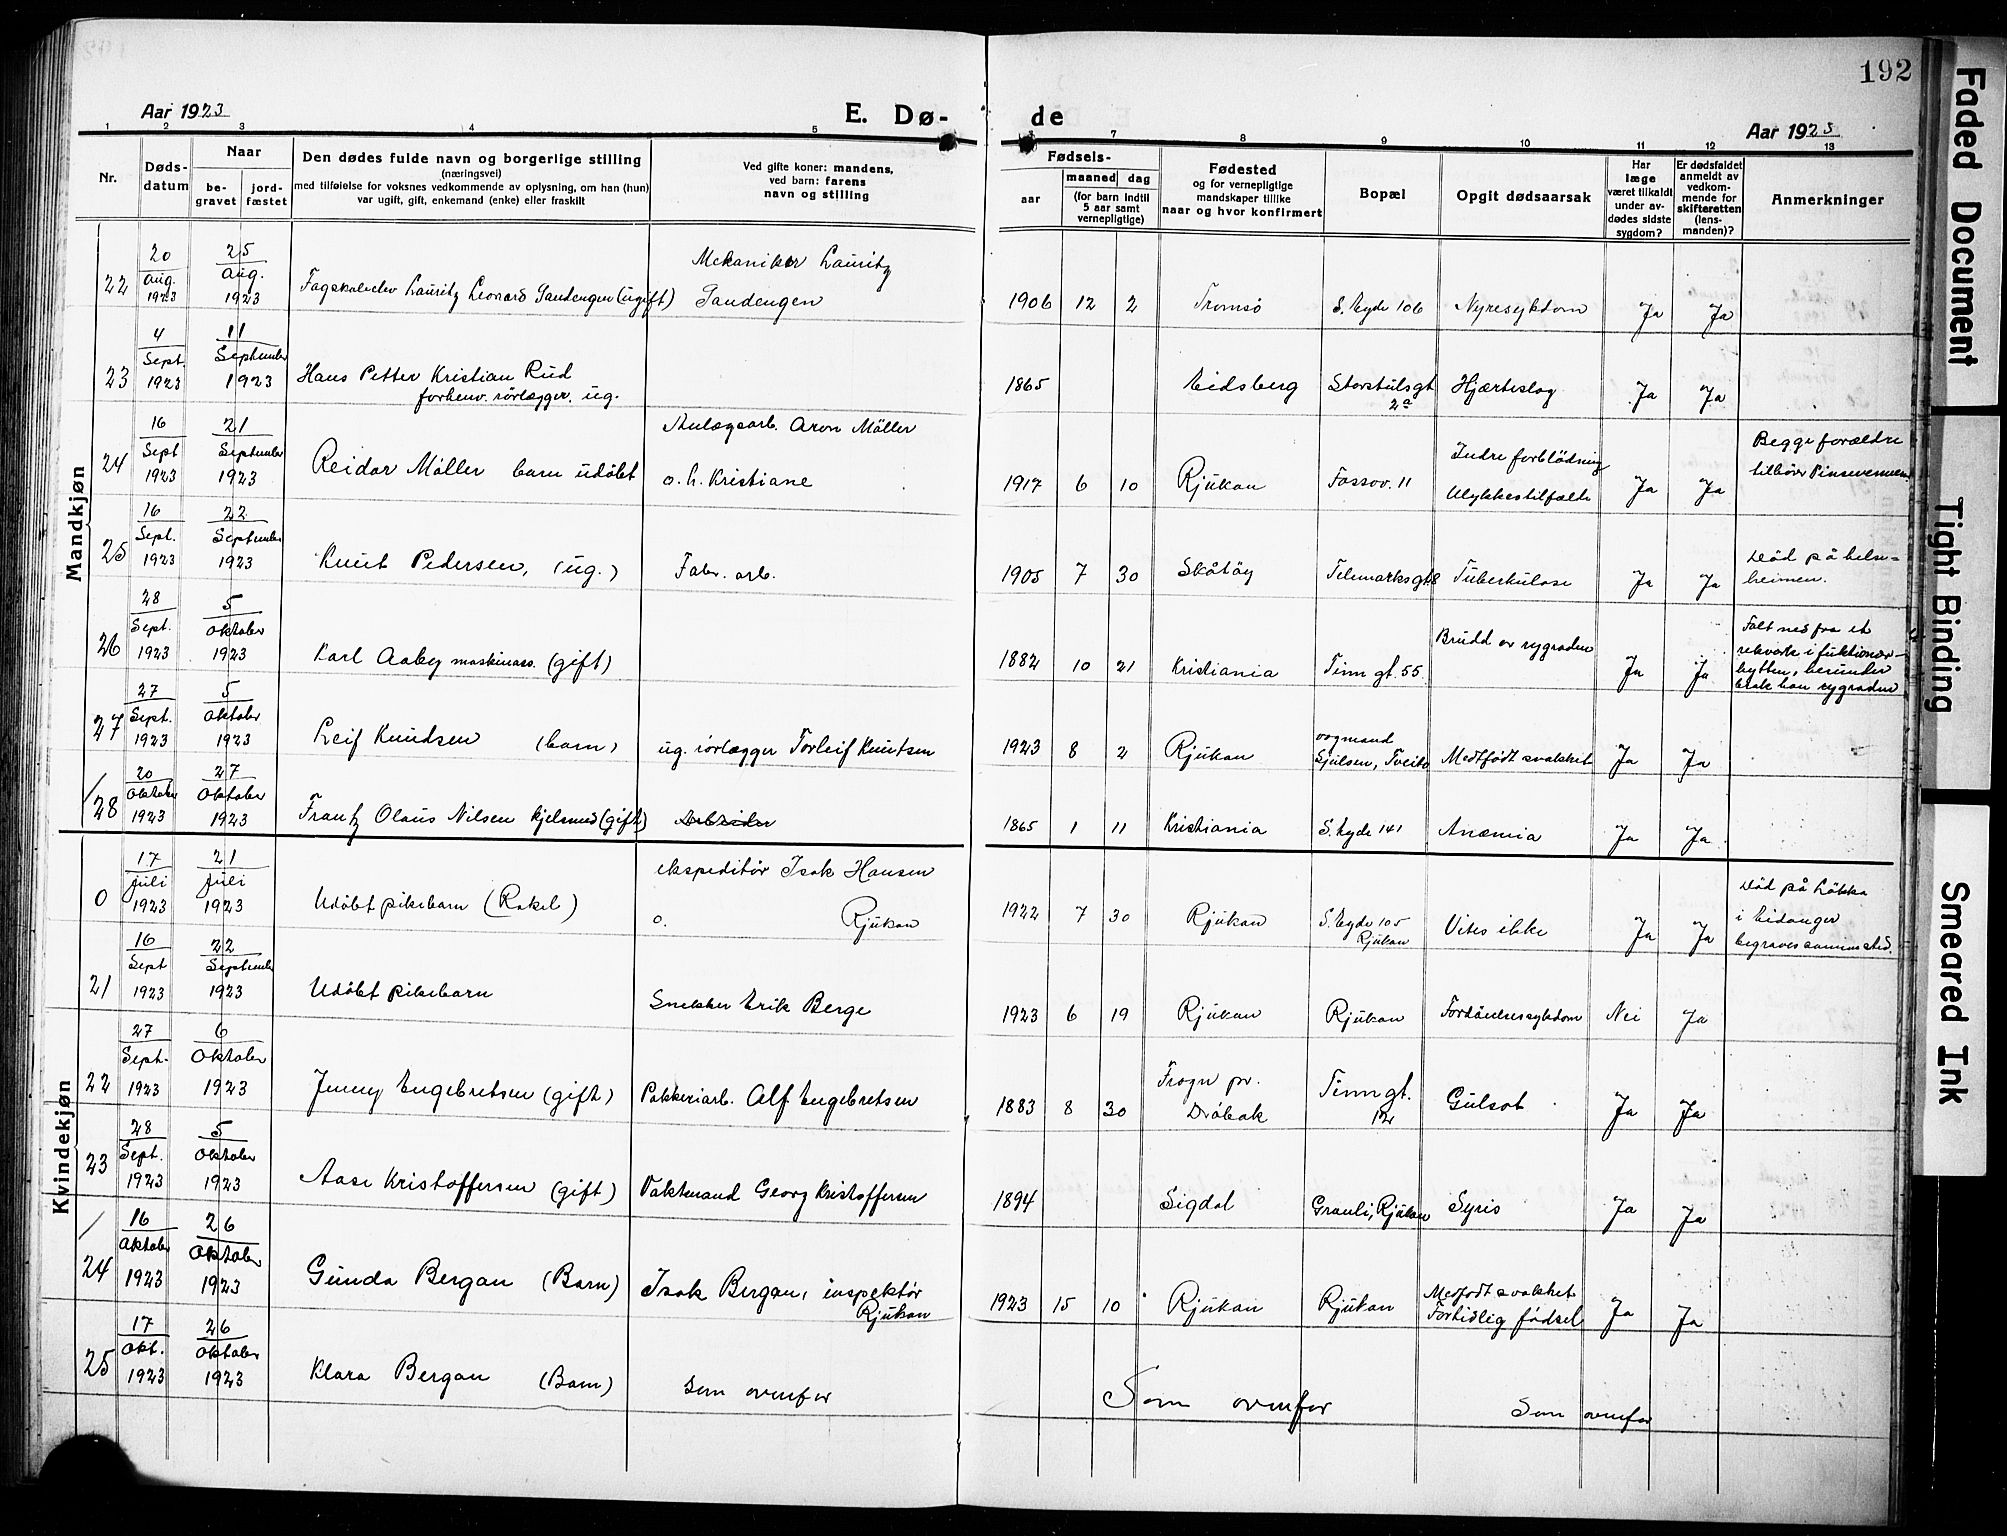 192
Aar 1923
E. Dø-
de
Aar 1923
1 2 3 4 5 7 8 9 10 11 12 13
Nr.
Døds-
datum
Naar
be-
gravet
jord-
fæstet
Den dødes fulde navn og borgerlige stilling
(næringsvei)
med tilføielse for voksnes vedkommende av oplysning, om han (hun)
var ugift, gift, enkemand (enke) eller fraskilt
Ved gifte koner: mandens,
ved barn: farens
navn og stilling
Fødsels-
aar
maaned dag
(for barn indtil
5 aar samt
vernepligtige)
Fødested
og for vernepligtige
mandskaper tillike
naar og hvor konfirmert
Bopæl
Opgit dødsaarsak
Har
læge
været tilkaldt
under av-
dødes sidste
sygdom?
Er dødsfaldet
anmeldt av
vedkom-
mende for
skifteretten
(lens-
manden)?
Anmerkninger
Mandkjøn
22
20 Aug. 1923
25 Aug. 1923
Fagskoleelev Lauritz Leonard Sandengen (ugift)
Mekaniker Lauritz
Sandengen
1906 12 2 Tromsø S. Eyde 106 Nyresykdom Ja Ja
23
4 Sept. 1923
11 September 1923
Hans Petter Kristian Rud
forhenv. rørlægger. ug.
1865 Eidsberg Storstulsgt
2a
Hjærteslag Ja Ja
24
16 Sept 1923
21 September 1923
Reidar Møller barn udøbt
Anlægsarb. Aron Møller
o. h. Kristiane
1917 6 10 Rjukan Fossov. 11
Indre forblødning
Ulykkestilfælde
Ja Ja
Begge forældre
tilhører Pinsevennene
25
16 Sept. 1923
22 September 1923
Knut Pedersen, (ug.)
Fabr. arb.
1905 7 30 Skåtøy Telemarksgt 8 Tuberkulose Ja Ja
Død på helse-
heimen.
26
28 Sept. 1923
5 Oktober 1923
Karl Aaby maskinass. (gift)
1882 10 21 Kristiania Tinn gt. 55
Brudd av rygraden
Ja Ja
Falt ned fra et
rekverk i funktionær-
hytten, herunder
brak han rygraden
27
27 Sept. 1923
5 Oktober 1923
Leif Knudsen (barn)
ug. rørlægger Torleif Knutsen
1923 8 2 Rjukan
vogmand
Gjulsen, Tveito
Medfødt svakhet Ja Ja
28
20 Oktober 1923
27 Oktober 1923
Frantz Olaus Nilsen Kjelsmed (gift)
Arbeider
1865 1 11 Kristiania S. Eyde 141 Anæmia Ja Ja
Kvindekjøn
0
17 Juli 1923
21 Juli 1923
Udøbt pikebarn (Rakel)
ekspeditør Isak Hansen
o. Rjukan
1922 7 30 Rjukan
S. Eyde 105
Rjukan
Vites ikke Ja Ja
Død på Løkka
i Eidanger
begraves samme sted.
21
16 Sept 1923
22 September 1923
Udøbt pikebarn
Snekker Erik Berge
1923 6 19 Rjukan Rjukan Fordøielsessykdom Nei Ja
22
27 Sept. 1923
6 Oktober 1923
Jenny Engebretsen (gift)
Pakkeriarb. Alf Engebretsen
1883 8 30
Frogn pr.
Drøbak
Tinn gt.
12
Gulsot Ja Ja
23
28 Sept. 1923
5 Oktober 1923
Aase Kristoffersen (gift)
Vaktmand Georg Kristoffersen
1894 Sigdal Grauli, Rjukan Syris Ja Ja
24
16 Oktober 1923
26 Oktober 1923
Gunda Bergan (Barn)
Isak Bergan, inspektør
Rjukan
1923 15 10 Rjukan Rjukan
Medfødt svakhet
Fortidlig fødsel
Ja Ja
25
17 Okt. 1923
26 Oktober 1923
Klara Bergan (Barn)
Som ovenfor
Som ovenfor
Som ovenfor
Faded Document
Tight Binding
Smeared Ink